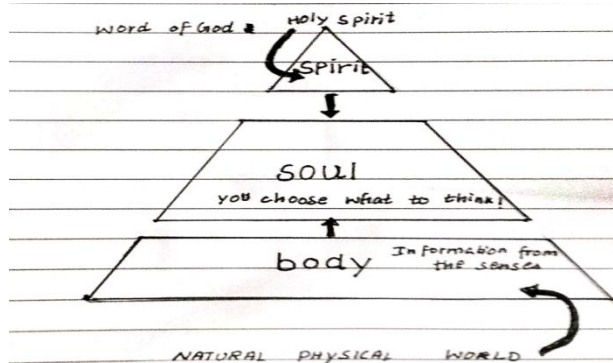 Holy Spirit
Word of God:
Spirit
soul
you choose what to think!
body
Information from
the senses
NATURAL PHYSICAL WORLD